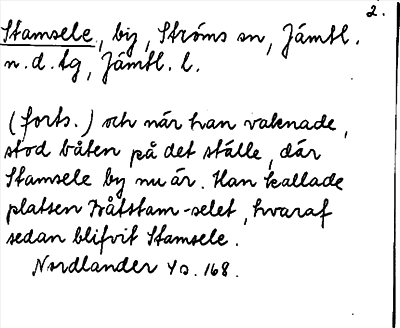 2.
Stamsele, by, Ströms sn, Jämtl.
n. d. tg, Jämtl. l.
(forts.) och när han vaknade,
stod båten på det ställe, där
Stamsele by nu är. Han kallade
platsen Båtstam-selet, hvaraf
sedan blifvit Stamsele.
Nordlander s. 168.